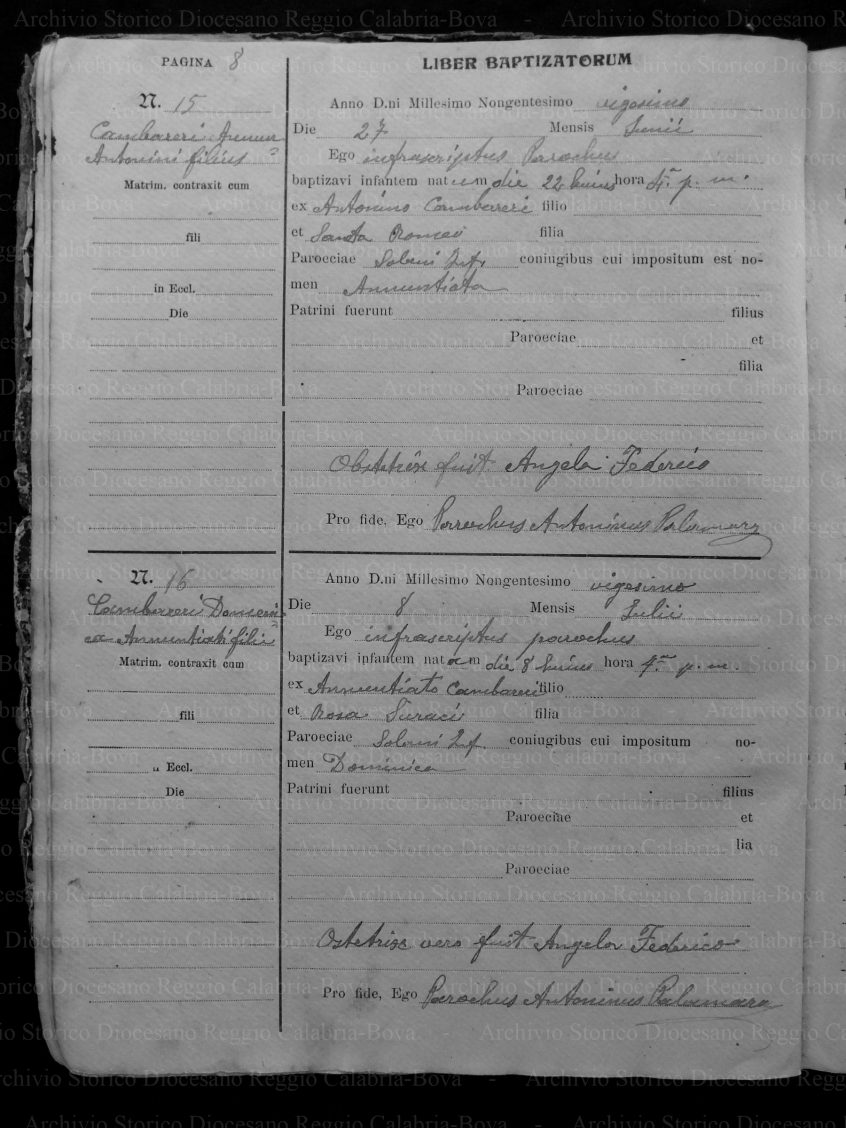 PAGINA 8
LIBER BAPTIZATORUM
N. 15
Cambareri Annun
Antonini filius
Matrim. contraxit cum
fili
in Eccl.
Die
Anno D.ni Millesimo Nongentesimo vigesimo
Die 27 Mensis Junii
Ego infrascriptus Parochus
baptizavi infantem natum die 22 huius hora 4.a p. m.
ex Antonino Cambareri filio
et Santa Romeo filia
Paroeciae Solani Inf. coniugibus cui impositum est no-
men Annuntiata
Patrini fuerunt filius
Paroeciae et
filia
Paroeciae
Obstetrix fuit Angela Federico
Pro fide, Ego Parochus Antoninus Palamara
N. 16
Cambareri Domeni
ca Annuntiati filia
Matrim. contraxit cum
fili
" Eccl.
Die
Anno D.ni Millesimo Nongentesimo vigesimo
Die 8 Mensis Julii
Ego infrascriptus parochus
baptizavi infantem natam die 8 huius hora 4.a p. m.
ex Annuntiato Cambareri filio
et Rosa Suraci filia
Paroeciae Solani Inf. coniugibus cui impositum no-
men Dominica
Patrini fuerunt filius
Paroeciae et
lia
Paroeciae
Ostetrix vero fuit Angela Federico
Pro fide, Ego Parochus Antoninus Palamara